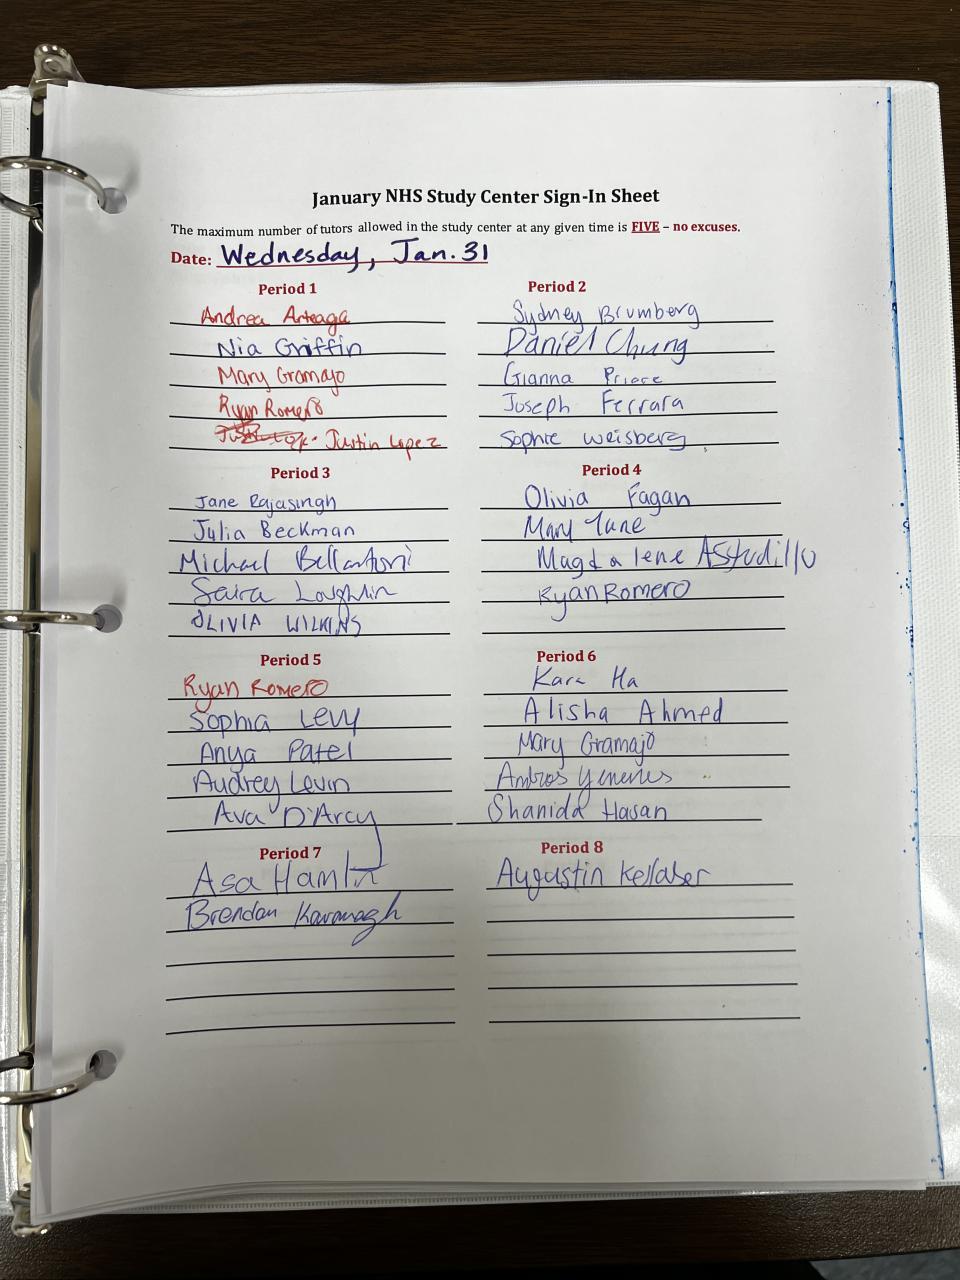 January NHS Study Center Sign-In Sheet
The maximum number of tutors allowed in the study center at any given time is FIVE – no excuses.
Date: Wednesday, Jan. 31
Period 1
Andrea Arteaga
Nia Griffin
Mary Gramajo
Ryan Romero
Justin Lopez
Period 2
Sydney Brumberg
Daniel Chung
Gianna
Joseph Ferrara
Sophie Weisberg
Period 3
Jane Rajasingh
Julia Beckman
Michael Bellantoni
Saira Loughlin
OLIVIA WILKINS
Period 4
Olivia Fagan
Mary
Magdalene Astudillo
Ryan Romero
Period 5
Ryan Romero
Sophia Levy
Anya Patel
Audrey Levin
Ava D'Arcy
Period 6
Kara Ha
Alisha Ahmed
Mary Gramajo
Shanida Hasan
Period 7
Asa Hamlin
Brendan Kavanagh
Period 8
Augustin